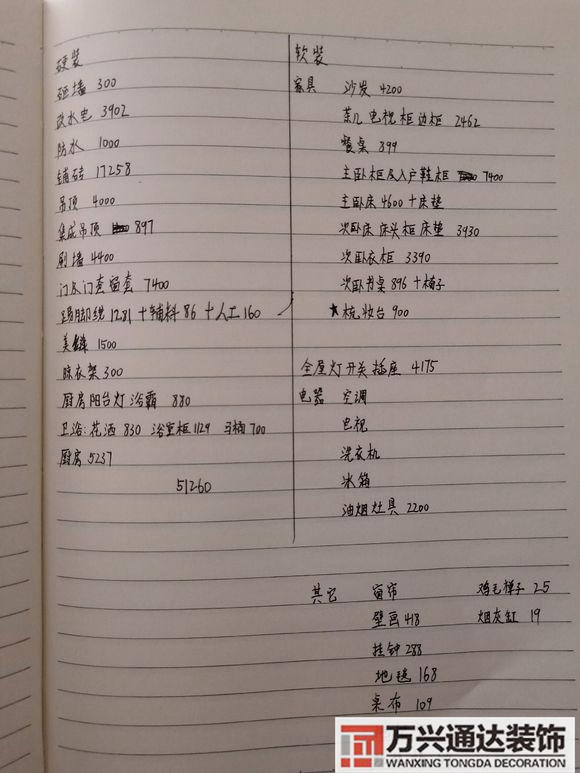 硬装
砸墙 300
改水电 3902
防水 1000
铺砖 17258
吊顶 4000
集成吊顶 897
刷墙 4400
门及门套窗套 7400
踢脚线 1281 + 辅料 86 + 人工 160
美缝 1500
晾衣架 300
厨房阳台灯 浴霸 880
卫浴:花洒 830 浴室柜 1129 马桶 700
厨房 5237
51260
软装
家具 沙发 4200
茶几 电视柜 边柜 2462
餐桌 899
主卧柜及入户鞋柜 7400
主卧床 4600 + 床垫
次卧床 床头柜 床垫 3930
次卧衣柜 3390
次卧书桌 896 + 椅子
★ 梳妆台 900
全屋灯 开关 插座 4175
电器 空调
电视
洗衣机
冰箱
油烟灶具 2200
其它 窗帘 鸡毛掸子 25
壁画 418 烟灰缸 19
挂钟 288
地毯 168
桌布 109
万兴通达装饰
WANXING TONGDA DECORATION